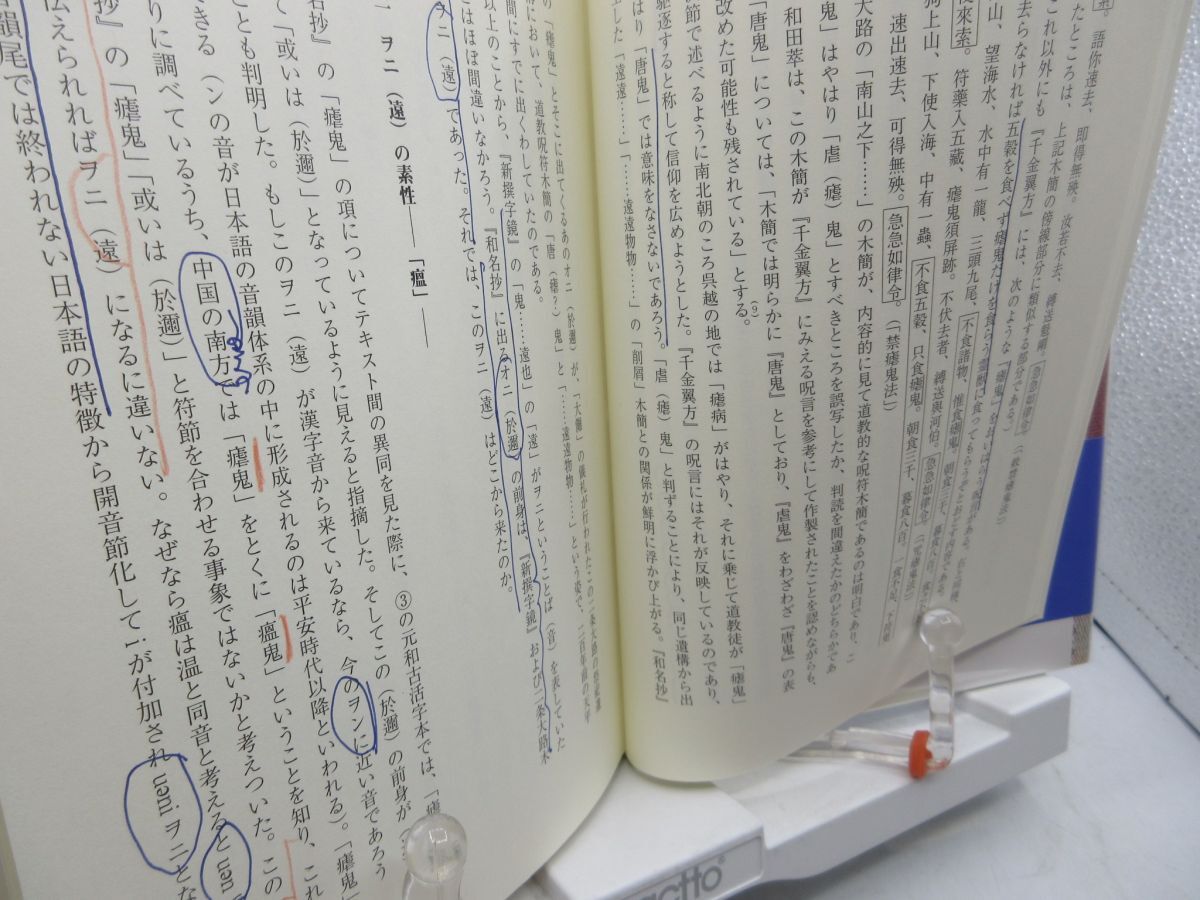 語你速去、即得無殃。汝若不去、縛送魁剛。急急如律令
たところは、上記木簡の傍線部分に類似する部分である。）
これ以外にも『千金翼方』には、次のような「瘧鬼」をおいはらう呪言がある。
去らなければ五穀を食べず瘧鬼だけを食らう霊獣に食ってもらうぞとおどす内容である。
山、望海水、水中有一龍、三頭九尾、不食諸物、惟食瘧鬼。朝食三千、暮食八百、
來索。符藥入五藏、瘧鬼須屏跡。不伏去者、縛送與河伯。急急如律令。
上山、下使入海、中有一蟲、不食五穀、只食瘧鬼。朝食三千、暮食八百、一食不足、下符
速出速去、可得無殃。急急如律令。（「禁瘧鬼法」）
大路の「南山之下……」の木簡が、内容的に見て道教的な呪符木簡であるのは明白であり、こ
鬼」はやはり「虐（瘧）鬼」とすべきところを誤写したか、判読を間違えたかのどちらかであ
和田萃は、この木簡が『千金翼方』にみえる呪言を参考にして作製されたことを認めながらも、
「唐鬼」については、「木簡では明らかに『唐鬼』としており、『虐鬼』をわざわざ『唐鬼』の表
改めた可能性も残されている」とする。(9)
節で述べるように南北朝のころ呉越の地では「瘧病」がはやり、それに乗じて道教徒が「瘧鬼」
駆逐すると称して信仰を広めようとした。『千金翼方』の呪言にはそれが反映しているのであり、
はり「唐鬼」では意味をなさないであろう。「虐（瘧）鬼」と判ずることにより、同じ遺構から出
土した「遠遠……」「……遠遠物……」の「削屑」木簡との関係が鮮明に浮かび上がる。『和名抄』
の「瘧鬼」とそこに出てくるあのオニ（於邇）が、「大儺」の儀礼が行われたこの二条大路の祭祀遺
において、道教呪符木簡の「唐（瘧？）鬼」と「……遠遠物……」という姿で、二百年前の天平
間にすでに出くわしていたのである。
以上のことから、『新撰字鏡』の「鬼……遠也」の「遠」がヲニということば（音）を表していた
とはほぼ間違いなかろう。『和名抄』に出るオニ（於邇）の前身は、『新撰字鏡』および二条大路木
ヲニ（遠）であった。それでは、このヲニ（遠）はどこから来たのか。
ヲニ（遠）の素性――「瘟」――
抄』の「瘧鬼」の項についてテキスト間の異同を見た際に、③の元和古活字本では、「瘧
て「或いは（於邇）」となっているように見えると指摘した。そしてこの（於邇）の前身が
とも判明した。もしこのヲニ（遠）が漢字音から来ているなら、今のヲンに近い音であろう
きる（ンの音が日本語の音韻体系の中に形成されるのは平安時代以降といわれる）。「瘧鬼」
りに調べているうち、中国の南方では「瘧鬼」をとくに「瘟鬼」ということを知り、これ
抄』の「瘧鬼」「或いは（於邇）」と符節を合わせる事象ではないかと考えついた。この
伝えられればヲニ（遠）になるに違いない。なぜなら瘟は温と同音と考えると uən
韻尾では終われない日本語の特徴から開音節化して i が付加され uəni ヲニとな
actto